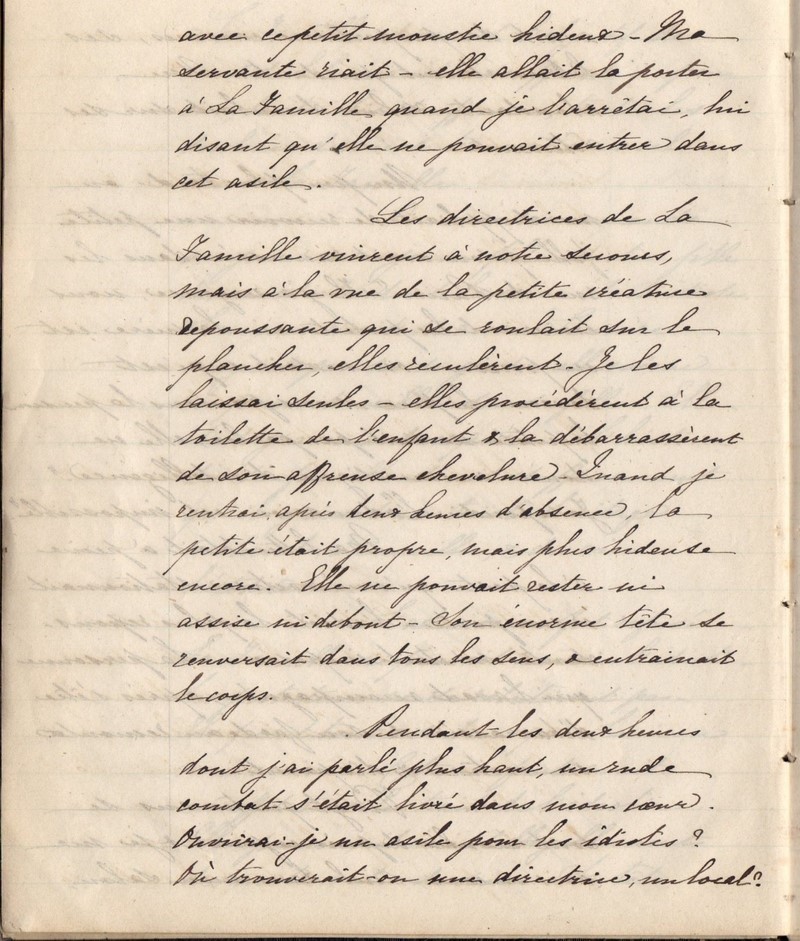 avec ce petit monstre hideux - Ma
servante riait - elle allait la porter
à La Famille quand je l'arrêtai, lui
disant qu'elle ne pouvait entrer dans
cet asile.
Les directrices de La
Famille vinrent à notre secours,
mais à la vue de la petite créature
repoussante qui se roulait sur le
plancher, elles reculèrent - Je les
laissai seules - elles procédèrent à la
toilette de l'enfant & la débarrassèrent
de son affreuse chevelure - Quand je
rentrai, après deux heures d'absence, la
petite était propre, mais plus hideuse
encore. Elle ne pouvait rester ni
assise ni debout - Son énorme tête se
renversait dans tous les sens, & entrainait
le corps.
Pendant les deux heures
dont j'ai parlé plus haut, un rude
combat s'était livré dans mon cœur.
Ouvrirai-je un asile pour les idiotes ?
Où trouverait-on une directrice, un local ?